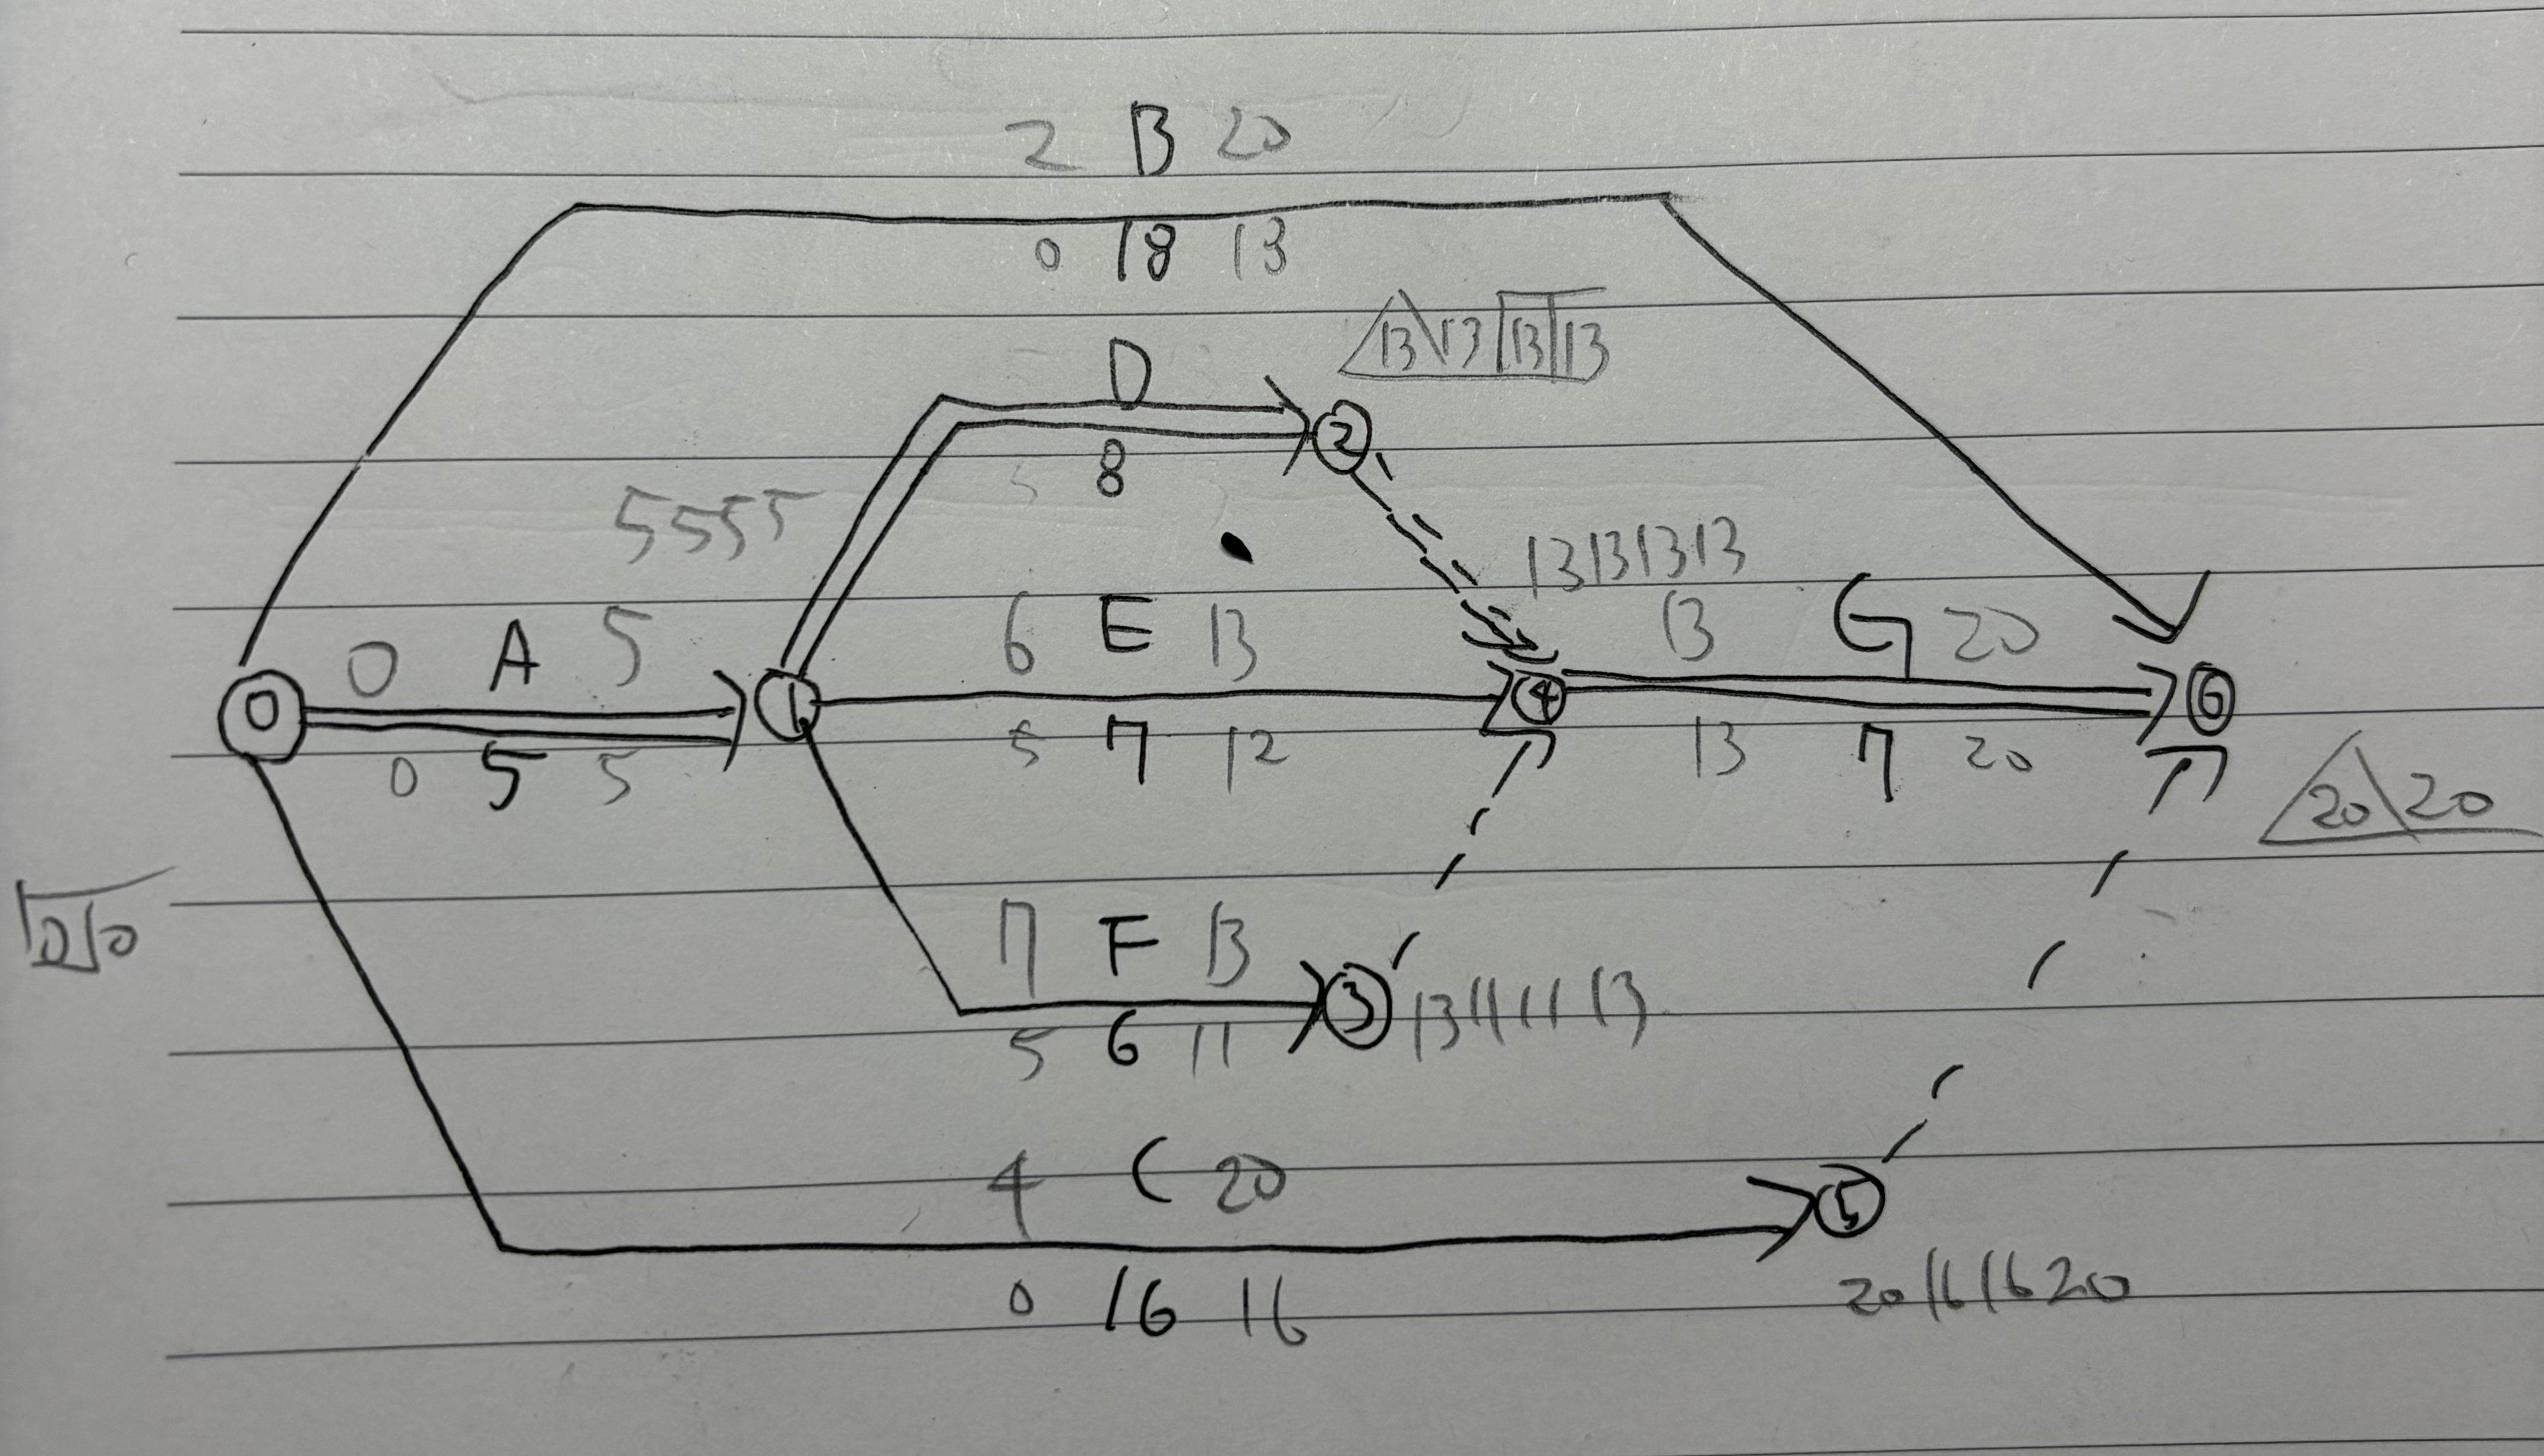 2 B 20
0 18 13
13 13 13 13
D
8
5 5 5 5
13 13 13 13
6 E 13
13 G 20
0 A 5
0 1 2 4 6
0 5 5
5 7 12
13 7 20
20 20
0 0
7 F 13
3
13 11 11 13
5 6 11
4 C 20
5
20 16 16 20
0 16 16